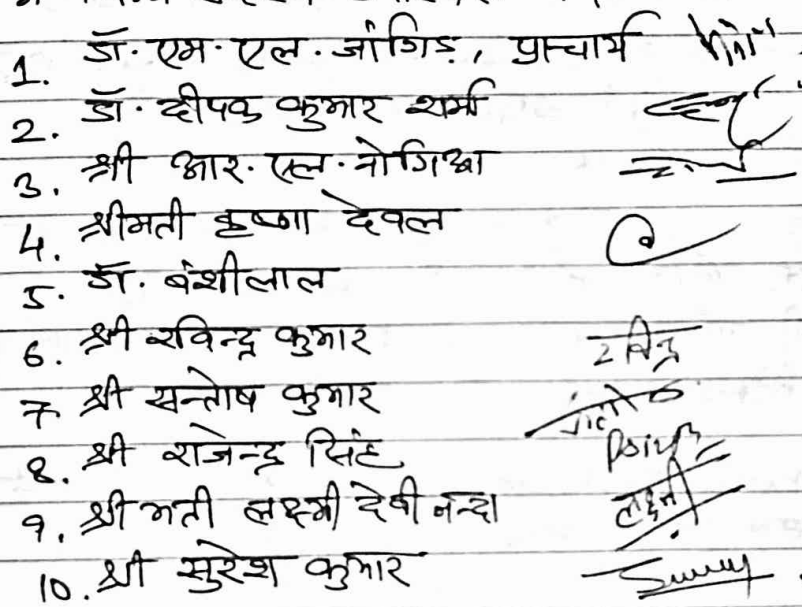 1. डॉ. एम. एल. जांगिड, प्राचार्य
2. डॉ. दीपक कुमार शर्मा
3. श्री आर. एल. नोगिआ
4. श्रीमती कृष्णा देवल
5. डॉ. बंशीलाल
6. श्री रविन्द्र कुमार रविन्द्र
7 श्री सन्तोष कुमार
8. श्री राजेन्द्र सिंह
9. श्री मती लक्ष्मी देवी नन्दा लक्ष्मी
10. श्री सुरेश कुमार